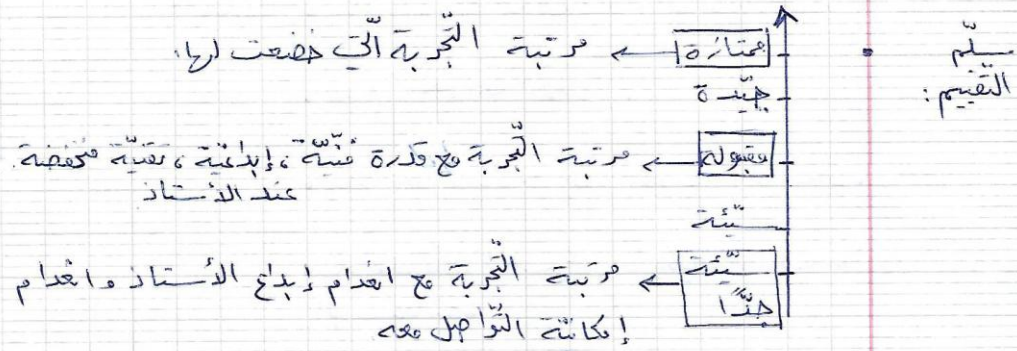 سلّم
التّقييم:
ممتازة ← مرتبة التّجربة الّتي خضعت لها.
جيّدة
مقبولة ← مرتبة التّجربة مع قدرة فنّيّة، إبداعيّة، تقنيّة منخفضة
عند الأستاذ
سيّئة
سيّئة جدًّا ← مرتبة التّجربة مع انعدام إبداع الأستاذ وانعدام
إمكانيّة التّواصل معه